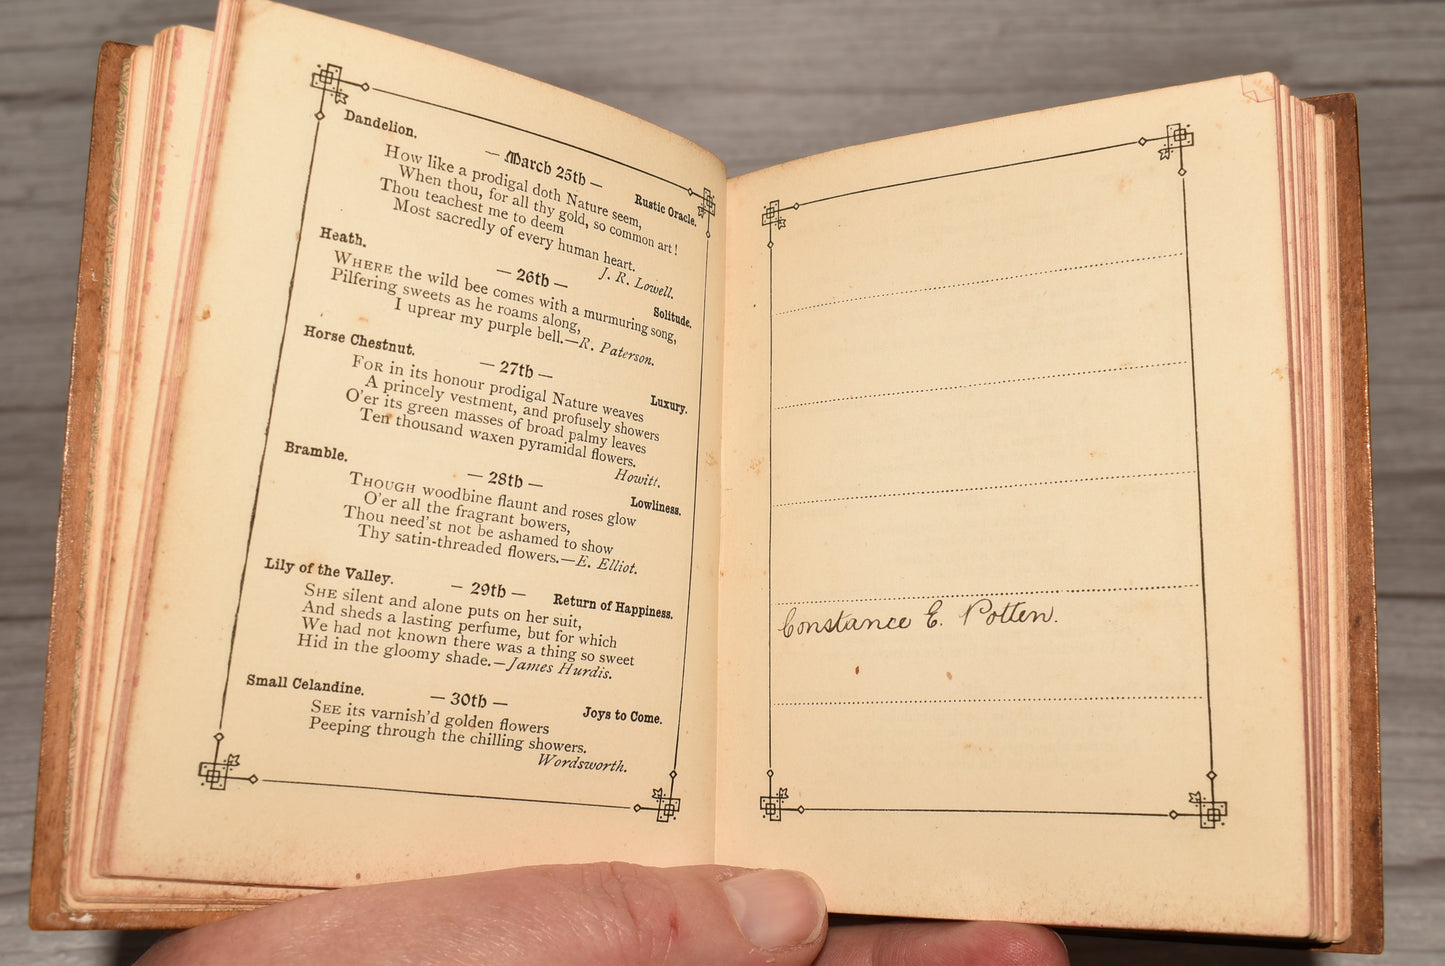 Dandelion.
— March 25th —
Rustic Oracle.
How like a prodigal doth Nature seem,
When thou, for all thy gold, so common art!
Thou teachest me to deem
Most sacredly of every human heart.
J. R. Lowell.
Heath.
— 26th —
Solitude.
WHERE the wild bee comes with a murmuring song,
Pilfering sweets as he roams along,
I uprear my purple bell.—R. Paterson.
Horse Chestnut.
— 27th —
Luxury.
FOR in its honour prodigal Nature weaves
A princely vestment, and profusely showers
O'er its green masses of broad palmy leaves
Ten thousand waxen pyramidal flowers.
Howitt.
Bramble.
— 28th —
Lowliness.
THOUGH woodbine flaunt and roses glow
O'er all the fragrant bowers,
Thou need'st not be ashamed to show
Thy satin-threaded flowers.—E. Elliot.
Lily of the Valley.
— 29th —
Return of Happiness.
SHE silent and alone puts on her suit,
And sheds a lasting perfume, but for which
We had not known there was a thing so sweet
Hid in the gloomy shade.—James Hurdis.
Small Celandine.
— 30th —
Joys to Come.
SEE its varnish'd golden flowers
Peeping through the chilling showers.
Wordsworth.
Constance E. Potten.